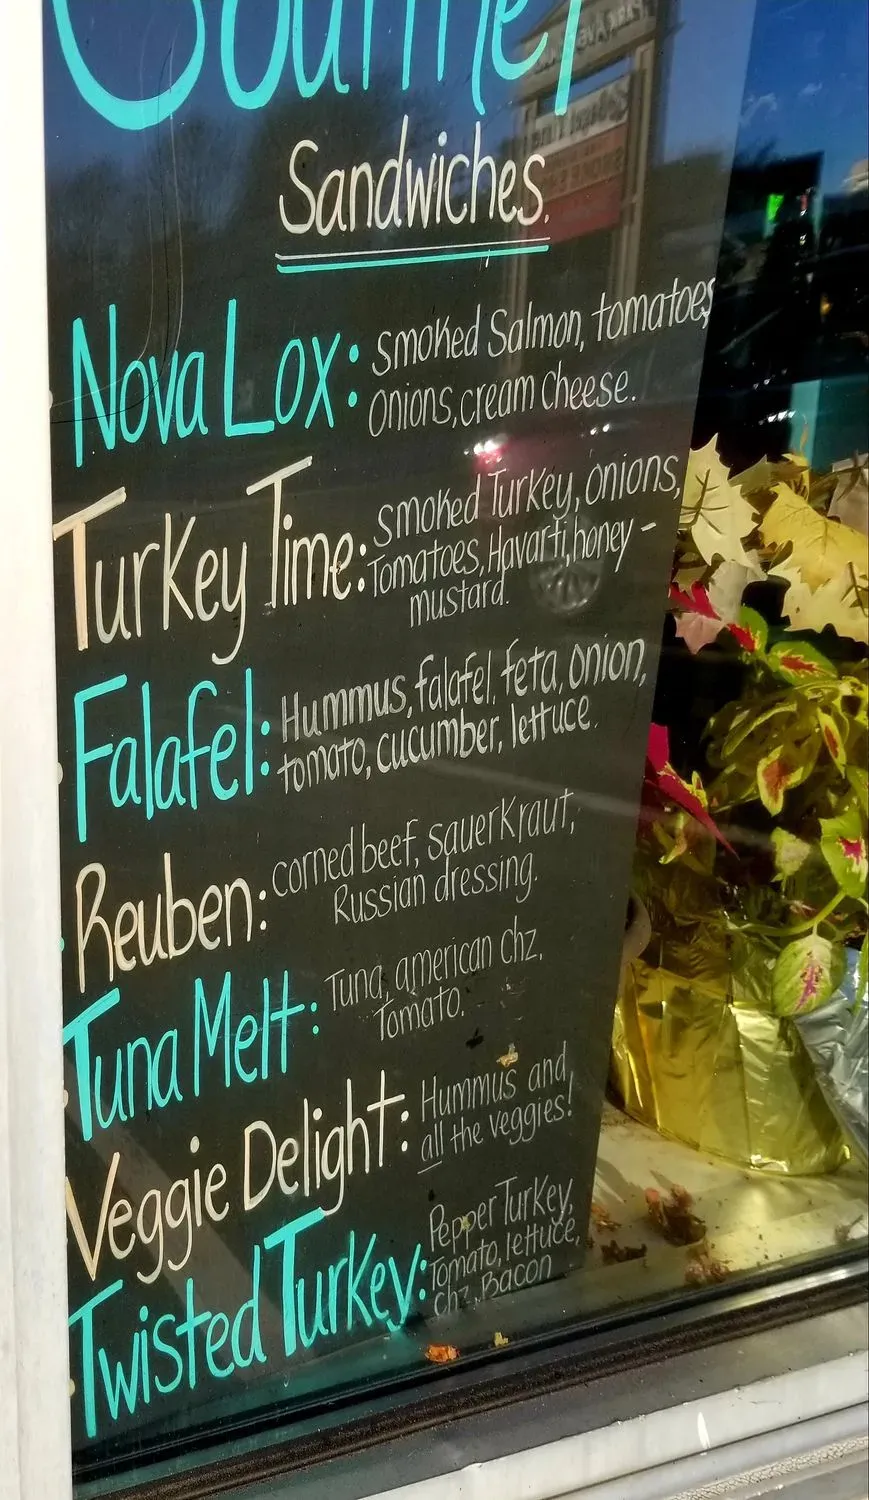 Gourmet
Sandwiches.
Nova Lox: smoked Salmon, tomatoes
onions, cream cheese.
Turkey Time: smoked Turkey, onions,
Tomatoes, Havarti, honey-
mustard.
Falafel: Hummus, falafel, feta, onion,
tomato, cucumber, lettuce.
Reuben: corned beef, sauerkraut,
Russian dressing.
Tuna Melt: Tuna, american chz,
Tomato.
Veggie Delight: Hummus and,
all the veggies!
Twisted Turkey: Pepper Turkey,
Tomato, lettuce,
chz, Bacon